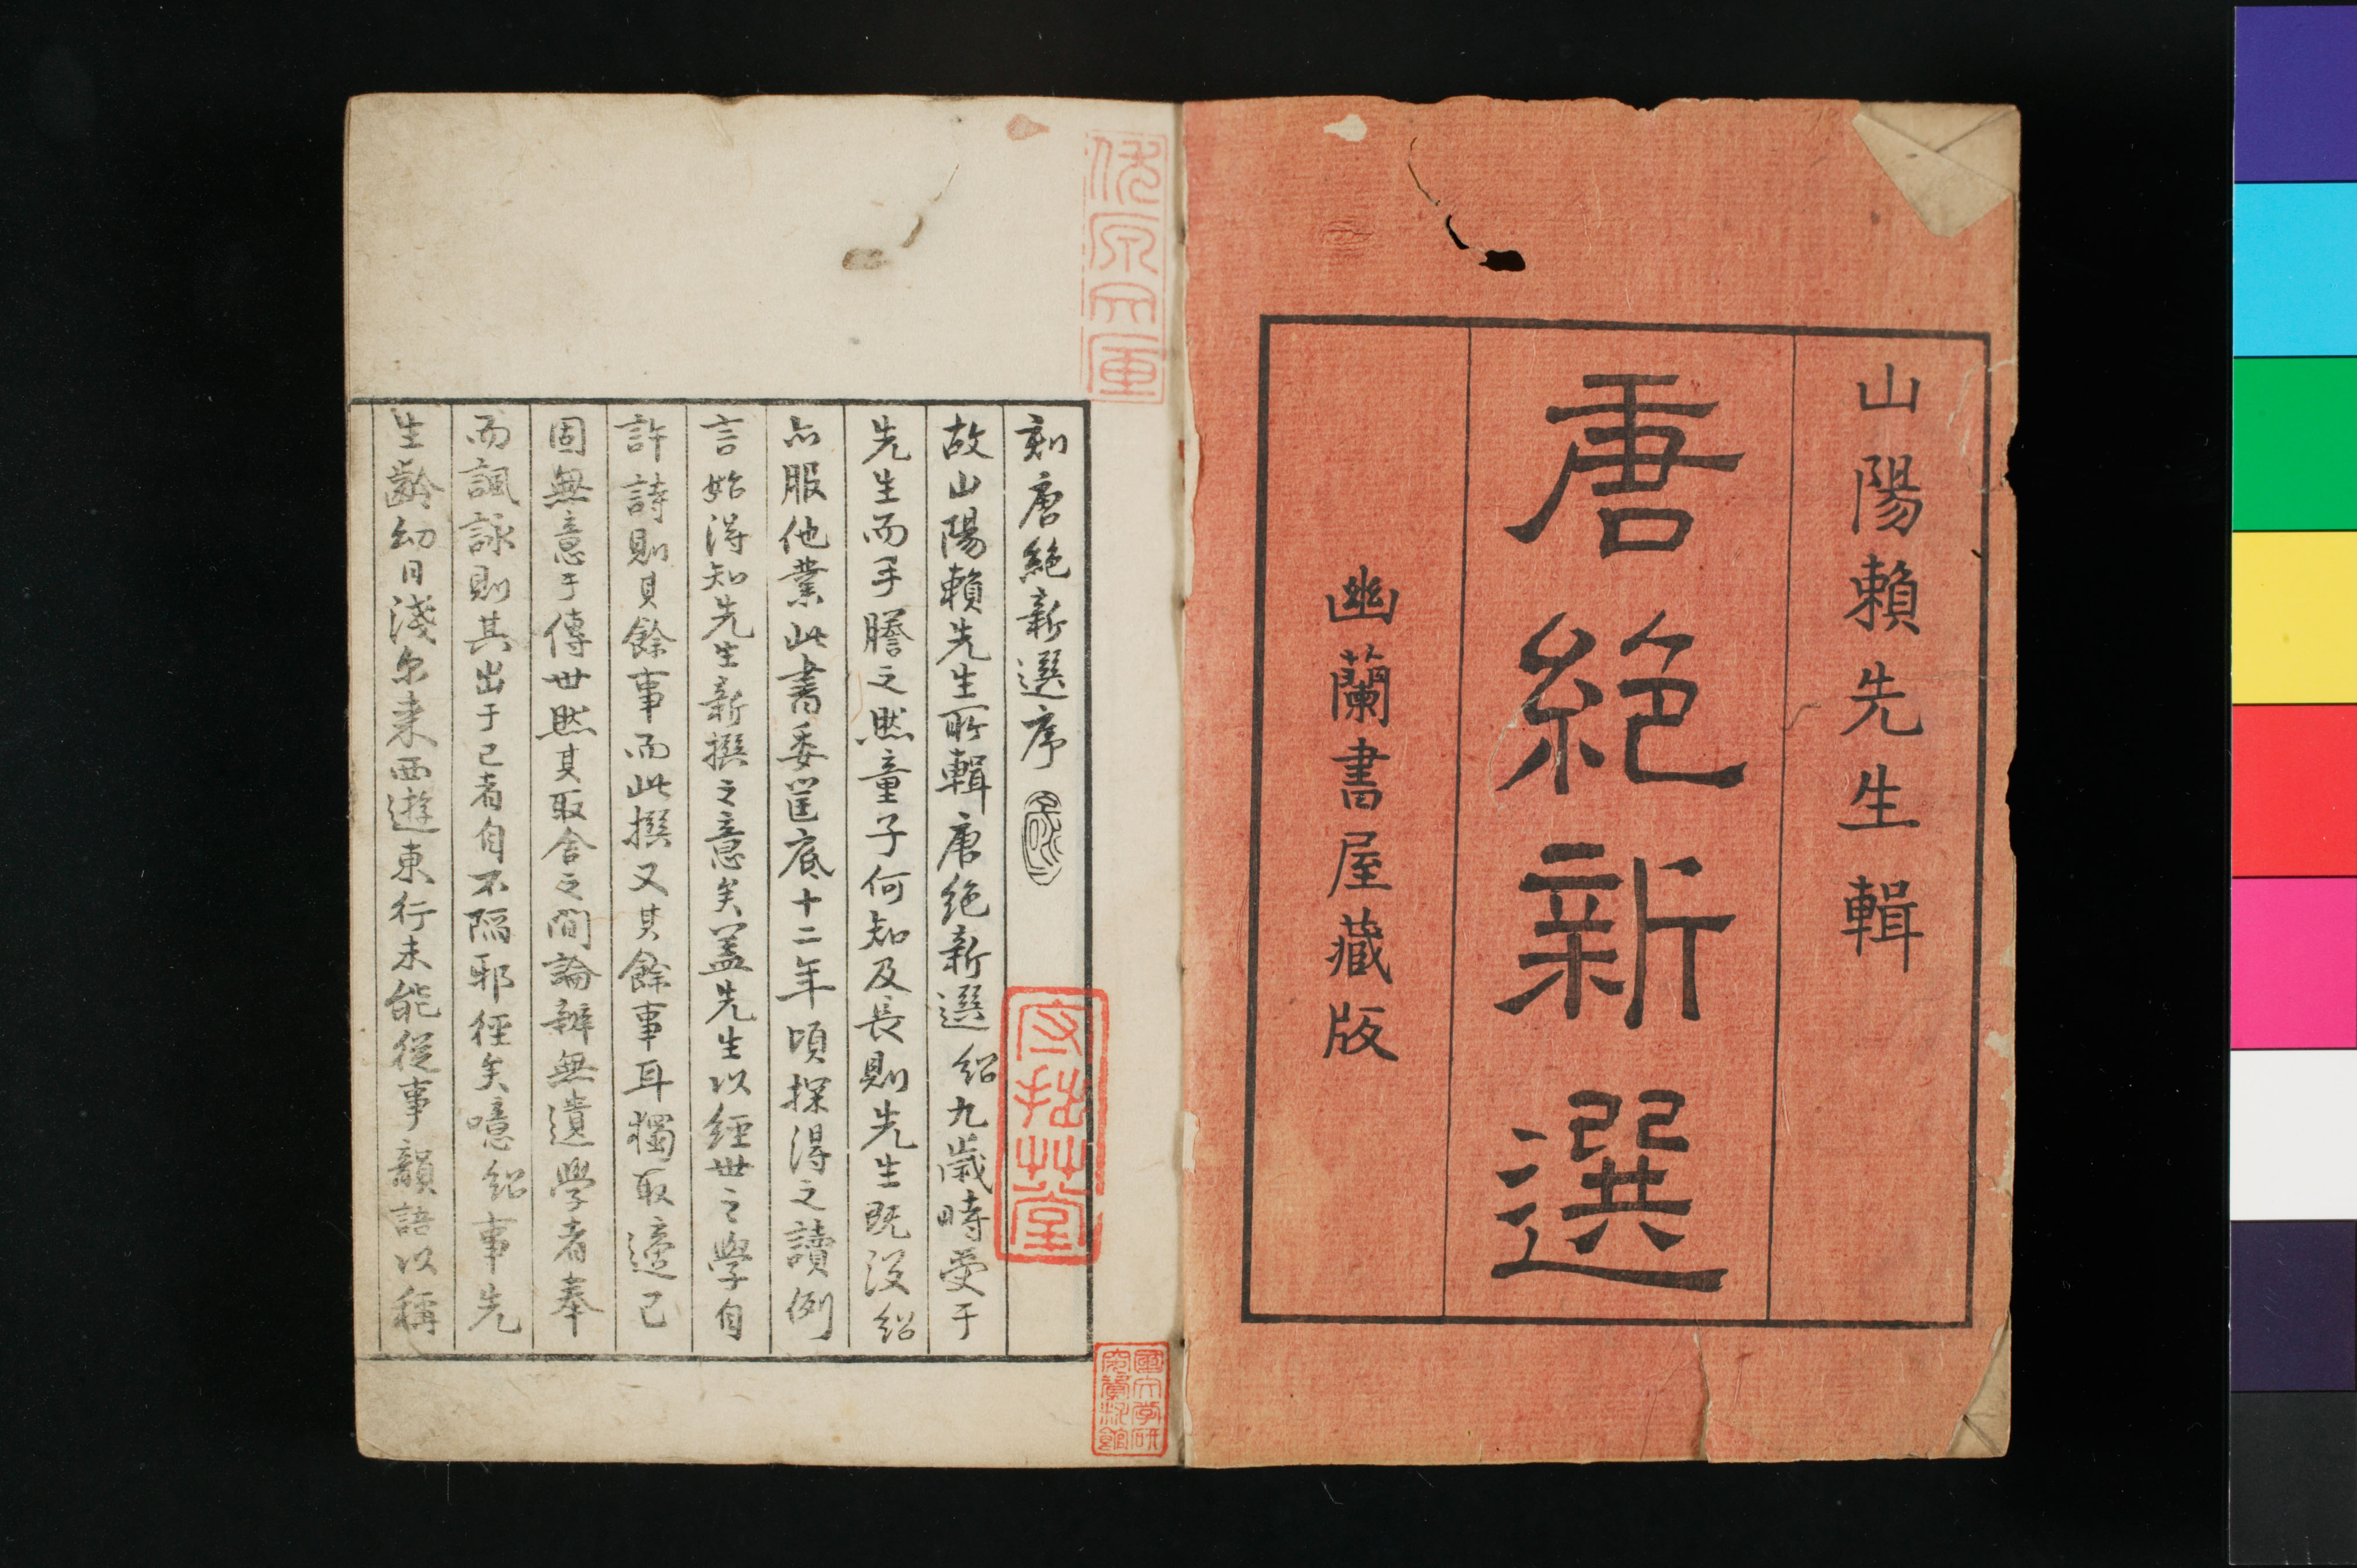 山陽賴先生輯
唐絕新選
幽蘭書屋藏版
刻唐絕新選序
故山陽賴先生所輯唐絕新選紹九歲時受于
先生而手謄之然童子何知及長則先生既沒紹
亦服他業此書委筐底十二年頃探得之讀例
言始得知先生新撰之意矣蓋先生以經世之學自
許詩則其餘事而此撰又其餘事耳獨取適己
固無意于傳世然其取舍之間論辨無遺學者奉
而諷詠則其出于己者自不陷邪徑矣噫紹事先
生齡幼日淺尓来西遊東行未能從事韻語以稱
守拙艸堂